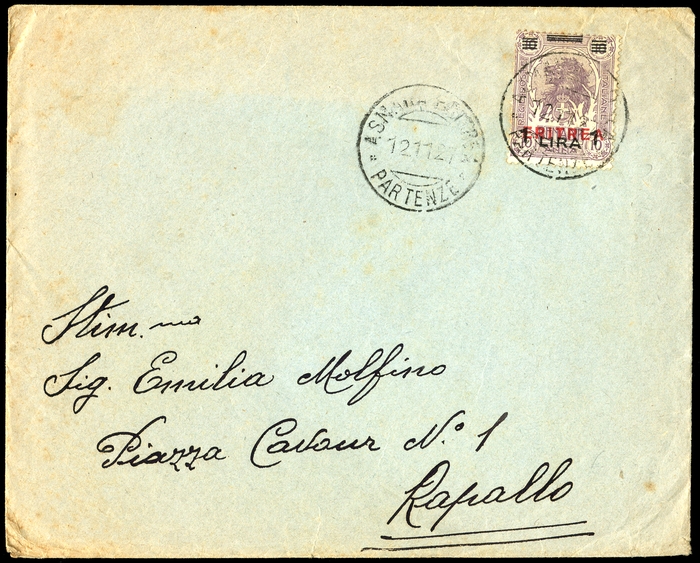 ERITREA
1 LIRA 1
12 11 27
PARTENZE
Stim.ma
Sig. Emilia Molfino
Piazza Cavour N.° 1
Rapallo